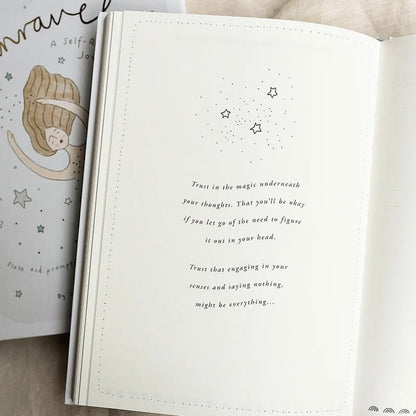 nravel
A Self-
Jou
Prose and promp
By
Trust in the magic underneath
your thoughts. That you'll be okay
if you let go of the need to figure
it out in your head.
Trust that engaging in your
senses and saying nothing,
might be everything...